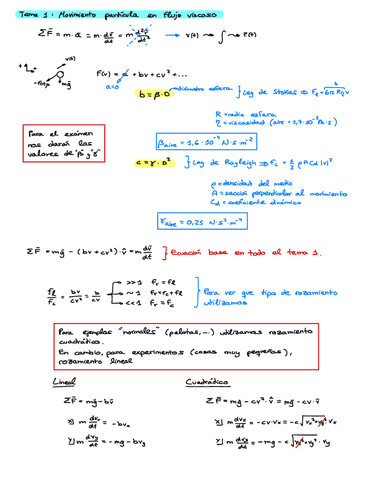 Tema 1: Movimiento partícula en flujo viscoso
ΣF⃗ = m·a⃗ = m·dv⃗/dt = m d²r⃗/dt² → v(t) → ∫ → r⃗(t)
v(t)
-F(v) mg⃗
F(v) = a + bv + cv² + ...
a=0
b = β·D → diámetro esfera } Ley de Stokes ⇒ F_l = 6πRηv
b
R = radio esfera
η = viscosidad (aire = 1,7·10⁻⁵ Pa·s)
Para el exámen
nos darán los
valores de "β" y "γ"
β_aire = 1,6·10⁻⁴ N·s·m⁻²
c = γ·D² } Ley de Rayleigh ⇒ F_c = 1/2 ρ A C_d |v|²
ρ = densidad del medio
A = sección perpendicular al movimiento
C_d = coeficiente dinámico
γ_aire = 0,25 N·s²·m⁻⁴
ΣF⃗ = mg⃗ - (bv + cv²)·v̂ = m dv⃗/dt } Ecuación base en todo el tema 1.
f_l/f_c = bv/cv² = b/cv { >> 1 F_r = f_l
~ 1 F_r = f_c + f_l
<< 1 F_r = F_c
} Para ver que tipo de rozamiento
utilizamos
Para ejemplos "normales" (pelotas,...) utilizamos rozamiento
cuadrático.
En cambio, para experimentos (cosas muy pequeñas),
rozamiento lineal
Lineal Cuadrático
ΣF⃗ = mg⃗ - bv⃗ ΣF⃗ = mg⃗ - cv²·v̂ = mg⃗ - cv·v⃗
x) m dv_x/dt = -bv_x x) m dv_x/dt = -cv·v_x = -c√(v_x²+v_y²) v_x
y) m dv_y/dt = -mg - bv_y y) m dv_y/dt = -mg - c√(v_x²+v_y²)·v_y